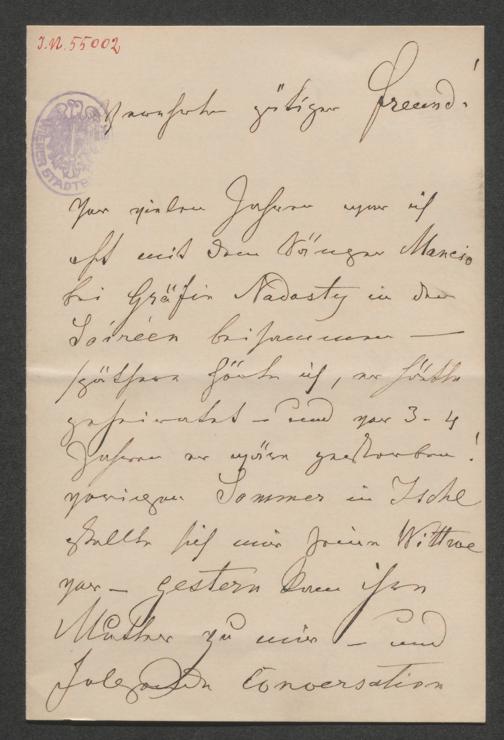 I.N. 55002
Verehrter gütiger Freund!
WIENER STADTB
Vor vielen Jahren war ich
oft mit dem Sänger Mancio
bei Gräfin Nadasty in den
Soiréen beisammen —
später hörte ich, er hätte
geheiratet – und vor 3-4
Jahren er wäre gestorben!
vorigen Sommer in Ischl
stellte sich mir seine Wittwe
vor – gestern kam ihre
Mutter zu mir – und
folgenden Conversation